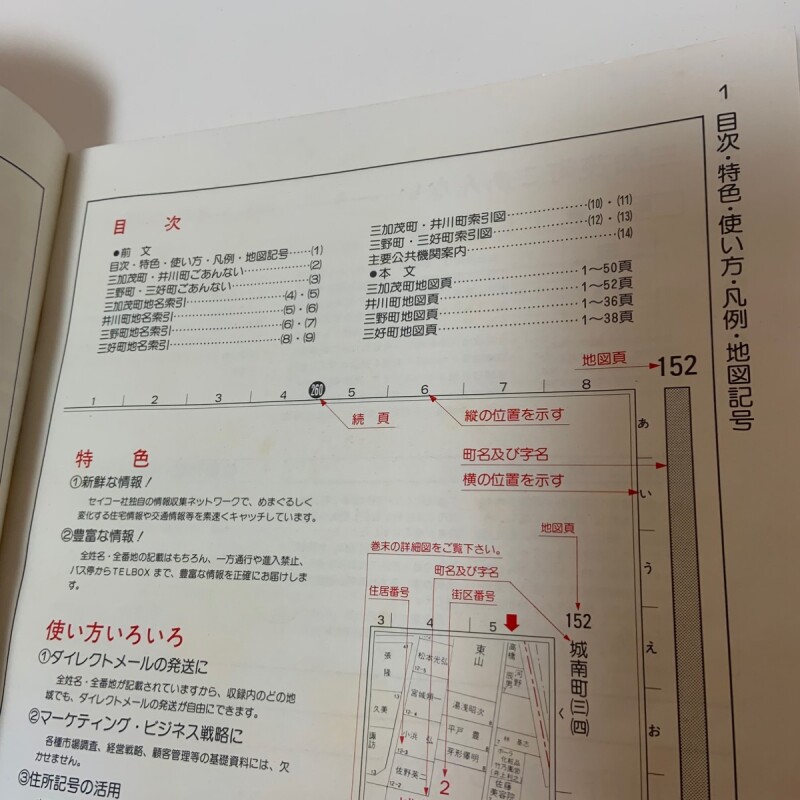 1 目次・特色・使い方・凡例・地図記号
目 次
●前 文
目次・特色・使い方・凡例・地図記号……(1)
三加茂町・井川町ごあんない……………(2)
三野町・三好町ごあんない………………(3)
三加茂町地名索引…………………(4)・(5)
井川町地名索引……………………(5)・(6)
三野町地名索引……………………(6)・(7)
三好町地名索引……………………(8)・(9)
三加茂町・井川町索引図…………(10)・(11)
三野町・三好町索引図……………(12)・(13)
主要公共機関案内……………………(14)
●本 文
三加茂町地図頁……………………1〜50頁
井川町地図頁………………………1〜52頁
三野町地図頁………………………1〜36頁
三好町地図頁………………………1〜38頁
地図頁
152
1 2 3 4 260 5 6 7 8
続 頁
縦の位置を示す
町名及び字名
横の位置を示す
あ
い
う
え
お
特 色
①新鮮な情報!
セイコー社独自の情報収集ネットワークで、めまぐるしく
変化する住宅情報や交通情報等を素速くキャッチしています。
②豊富な情報!
全姓名・全番地の記載はもちろん、一方通行や進入禁止、
バス停からTELBOXまで、豊富な情報を正確にお届けしま
す。
使い方いろいろ
①ダイレクトメールの発送に
全姓名・全番地が記載されていますから、収録内のどの地
域でも、ダイレクトメールの発送が自由にできます。
②マーケティング・ビジネス戦略に
各種市場調査、経営戦略、顧客管理等の基礎資料には、欠
かせません。
③住所記号の活用
巻末の詳細図をご覧下さい。
地図頁
町名及び字名
住居番号
街区番号
152
城南町(三)(四)
3 4 5
く
張 隆
松本光弘
東山
高橋
河野
宮城順一
久美
湯浅昭次
小浜 弘
平戸 豊
諏訪
芽形優明
佐野英二
佐藤
美容院
2